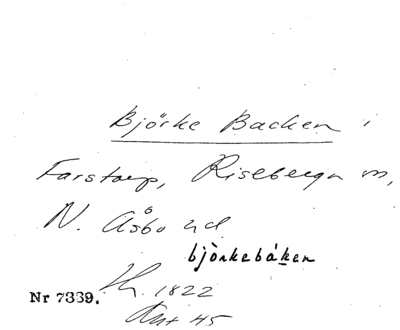 Björke Backen i
Farstorp, Riseberga sn,
N. Åsbo hd
bjö̀rkebáken
Nr 7339.
1822
Ant 45